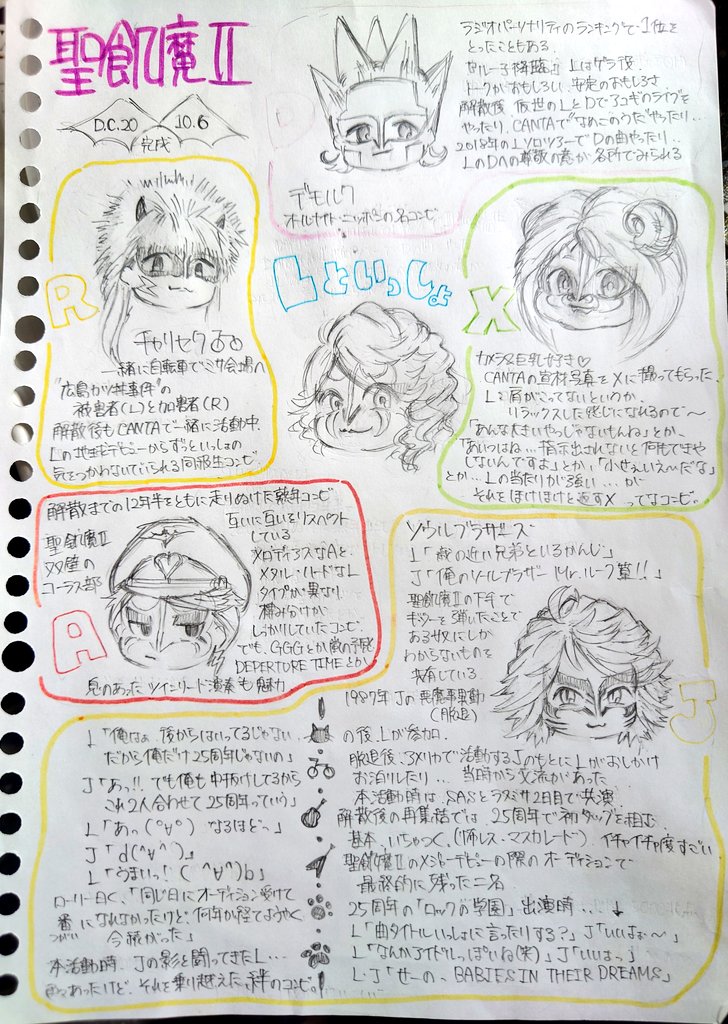 聖飢魔II
D.C.20 10.6
完成
ラジオパーソナリティのランキングで1位を
とったこともある.
Lはゲラ役.
トークがおもしろい. 安定のおもしろさ
解散後. 仮世のLとDでアコギのライブを
やったり. CANTAで"なめこのうた"やったり…
2018年のLソロツアーでDの曲やったり…
LのDへの尊敬の念が各所でみられる
D
デモルク
オールナイト・ニッポンの名コンビ
R
チャリセク
一緒に自転車でミサ会場へ
"広島カツ丼事件"の
被害者(L)と加害者(R)
解散後もCANTAで一緒に活動中.
Lの地球デビューからずっといっしょの
気をつかわないでいられる同級生コンビ
Lといっしょ
X
カメラ&巨乳好き♡
CANTAの宣材写真をXに撮ってもらった.
L「肩がこってないというか.
リラックスした感じになれるので〜
「あんな大きいやつじゃないもんね」とか.
「あいつはね… 指示出されないと何もできや
しないんですよ」とか.「小せぇいえ〜だな」
とか… Lの当たりが強い… が
それをほけほけと返すX ってなコンビ.
解散までの12年半をともに走りぬけた熟年コンビ
聖飢魔II
双璧の
コーラス部
互いに互いをリスペクト
している
メロディアスなAと
メタル・ハードなL
タイプが異なり
棲み分けが
しっかりしていたコンビ
でも. GGGとか敵の予兆
DEPERTURE TIMEとか
息のあったツインリード演奏も魅力
A
ソウルブラザーズ
L「歳の近い兄弟といるかんじ」
J「俺のソールブラザー Mr.ルーク篁!!」
聖飢魔IIの下手で
ギターを弾いたことで
ある奴にしか
わからないものを
共有している
J
1987年 Jの悪魔事異動
(脱退)
の後、Lが参加.
脱退後、アメリカで活動するJのもとにLがおしかけ
お泊りしたり… 当時から交流があった
本活動時はSASとラスミサ2日目で共演
解散後の再集結では. 25周年で初タッグを組む.
基本、いちゃつく.(怖レス・マスカレード). イチャイチャ度すごい
聖飢魔IIのメジャーデビューの際のオーディションで
最終的に残った二名
25周年の「ロックの学園」出演時… ↓
L「曲タイトルいっしょに言ったりする?」J「いいよぉ〜」
L「なんかアイドルっぽいね(笑)」J「いいよっ」
L・J「せーの、BABIES IN THEIR DREAMS」
L「俺はぁ. 後からはいってるじゃない.
だから俺だけ25周年じゃないの」
J「あっ!! でも俺も中抜けしてるから
これ2人合わせて25周年っていう」
L「あっ(°∀°) なるほどっ」
J「d(^∀^)」
L「うまいっ!(^∀^)b」
ローリー曰く、「同じ日にオーディション受けて
番になれなかったけど、何年か経てようやく
つがい
今繋がった」
本活動時. Jの影と闘ってきたL…
色々あったけど. それを乗り越えた. 絆のコンビ!